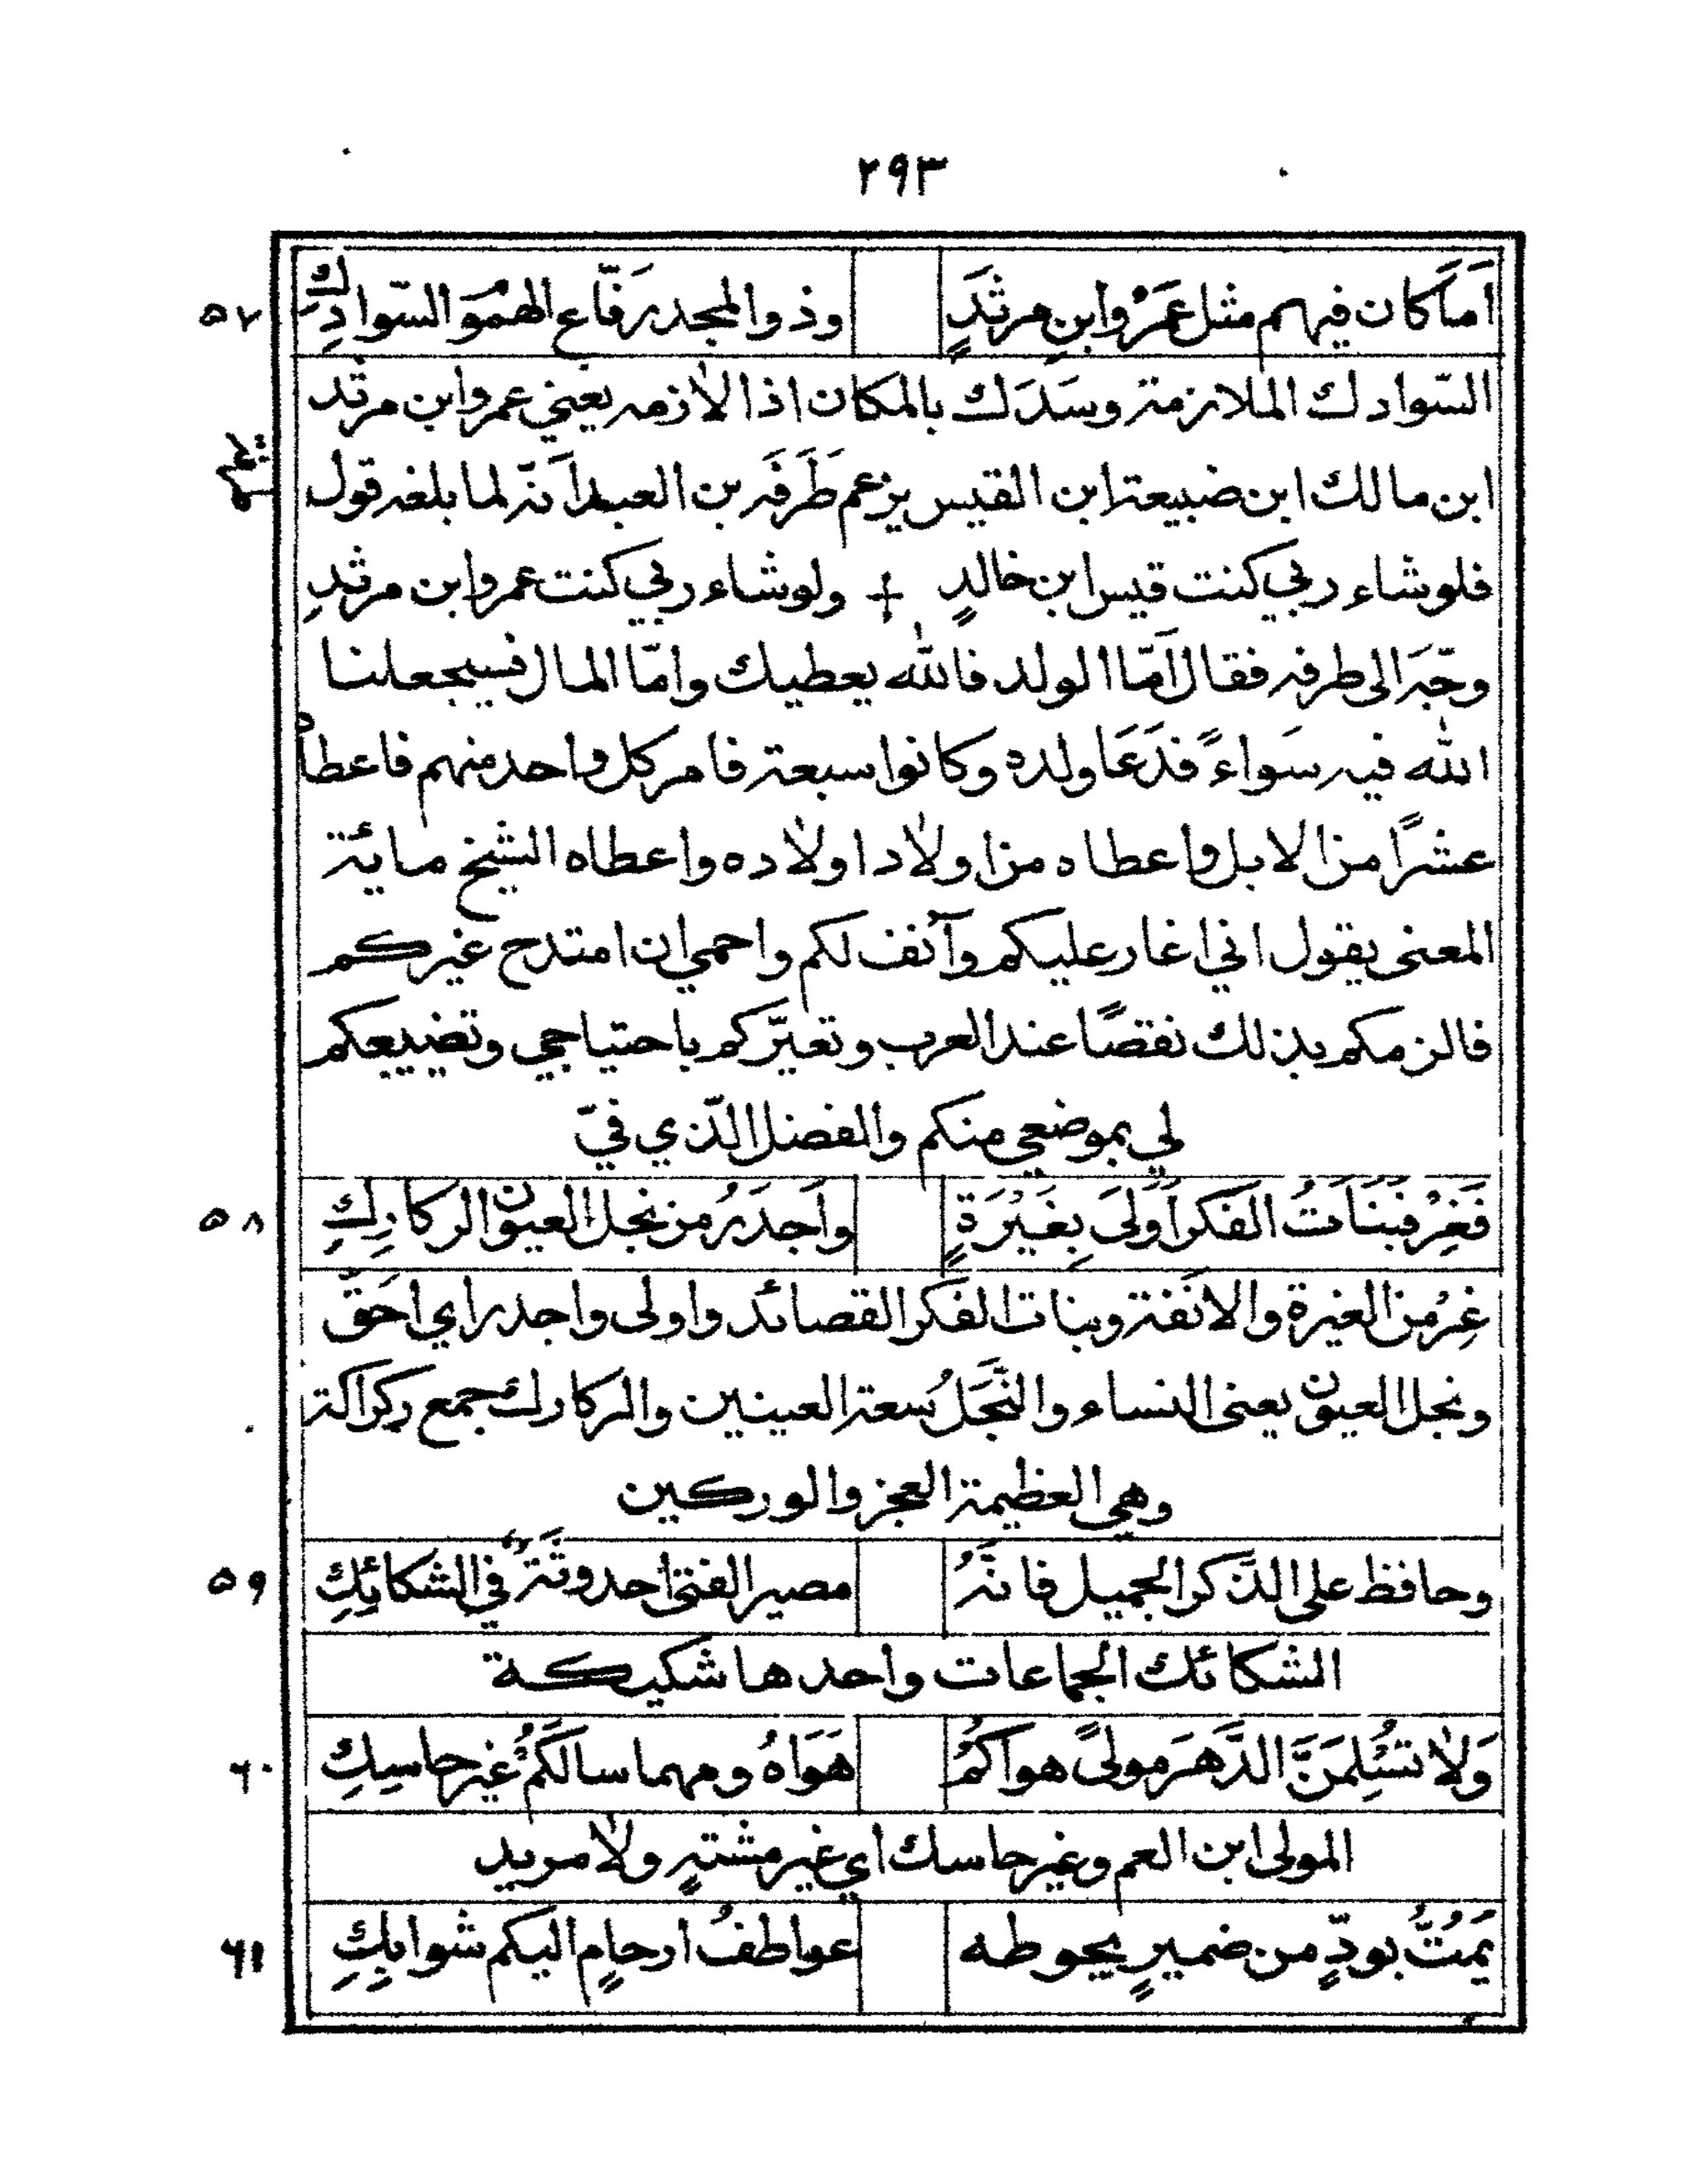 ٢٩٣
اَمَا كَان فيهم مثل عَمْرُو ابنِ مرثَدٍ وذو المجد رَفّاع الهُمُوَ السّوادِكِ ٥٧
السّوادك الملازمة وسَدَك بالمكان اذا لازمه يعني عمرو ابن مرثد
ابن مالك ابن ضبيعة ابن القيس يزعم طَرَفَه بن العبد اَنّه لما بلغه قول
فلو شاء ربي كنت قيس ابن خالدٍ + ولو شاء ربي كنت عمرو ابن مرثدِ
وجّهَ الى طرفه فقال اَمّا الولد فالله يعطيك وامّا المال فسيجعلنا
الله فيه سَواءً فدَعَا ولده وكانوا سبعة فامر كل واحد منهم فاعطاه
عشرًا من الابل واعطاه من اولاد اولاده واعطاه الشيخ مائة
المعنى يقول اني اغار عليكم وآنف لكم واحمي ان امتدح غيركم
فالزمكم بذلك نقصًا عند العرب وتعيّركم باحتياجي وتضييعكم
لي بموضعي منكم والفضل الّذي فيّ
فَغِرْ فبَنَاتُ الفَكر اَولَى بِغَيْرَةٍ واَجدَرُ من نجل العيون الركارِكِ ٥٨
غِرْ من الغيرة والانَفَة وبنات الفكر القصائد واولى واجدر اي احَقّ
ونجل العيون يعنى النساء والنَّجَلُ سعة العينين والركارك جمع ركراكة
وهي العظيمة العجز والوركين
وحافظ على الذّكر الجميل فانّهُ مصير الفتى احدوثَةً في الشكائِكِ ٥٩
الشكائك الجماعات واحدها شكيكة
وَلا تسْئِلَمَنَّ الدَّهرَ مولىً هواكُمُ هَوَاهُ ومهما سالكُمْ غير حاسِكِ ٦٠
المولى ابن العم وغير حاسك اي غير مشتهٍ ولا مريد
يَمُتُّ بودٍّ من ضميرٍ يحوطه عواطفُ ارحامٍ اليكم شوابِكِ ٦١